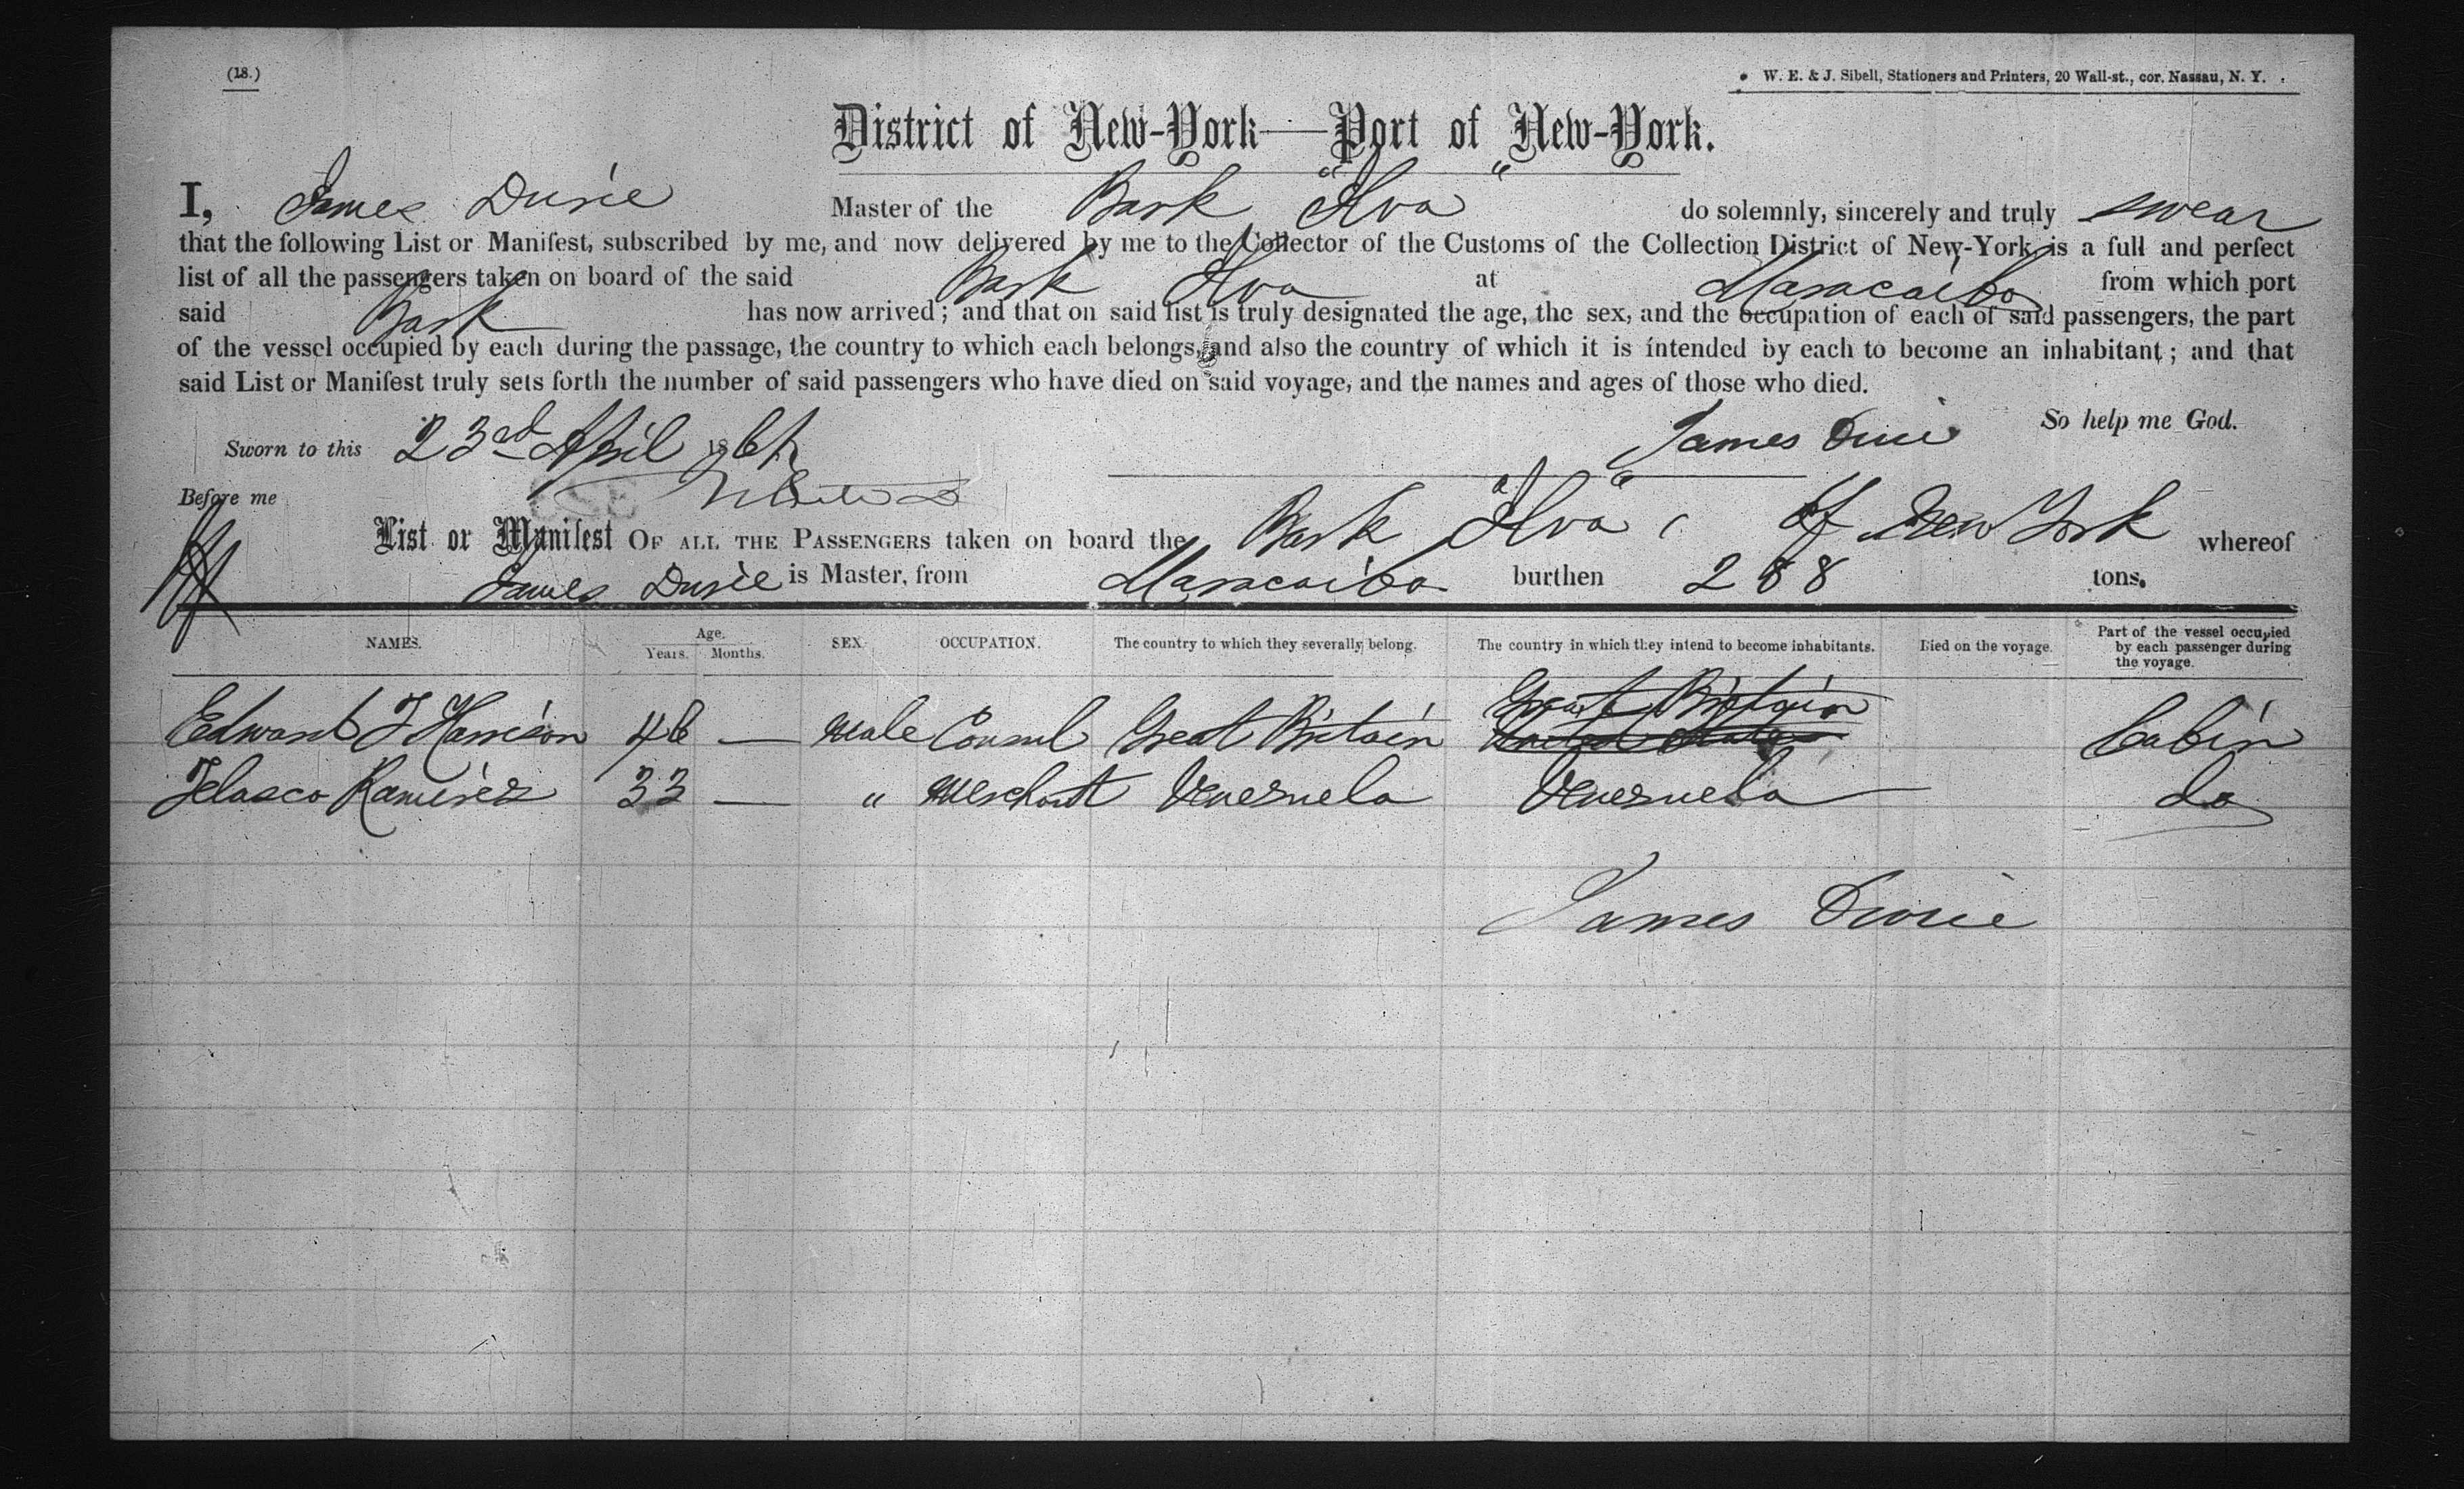 (18.)
W. E. & J. Sibell, Stationers and Printers, 20 Wall-st., cor. Nassau, N. Y.
District of New-York—Port of New-York.
I, James Durie Master of the Bark "Alva" do solemnly, sincerely and truly swear
that the following List or Manifest, subscribed by me, and now delivered by me to the Collector of the Customs of the Collection District of New-York, is a full and perfect
list of all the passengers taken on board of the said Bark Alva at Maracaibo from which port
said Bark has now arrived; and that on said list is truly designated the age, the sex, and the occupation of each of said passengers, the part
of the vessel occupied by each during the passage, the country to which each belongs, and also the country of which it is intended by each to become an inhabitant; and that
said List or Manifest truly sets forth the number of said passengers who have died on said voyage, and the names and ages of those who died.
So help me God.
Sworn to this 23rd April James Durie
Before me
List or Manifest OF ALL THE PASSENGERS taken on board the Bark "Alva" of New York whereof
James Durie is Master, from Maracaibo burthen 288 tons.
NAMES. Age. Years. Months. SEX. OCCUPATION. The country to which they severally belong. The country in which they intend to become inhabitants. Died on the voyage. Part of the vessel occupied by each passenger during the voyage.
Great Britain
Edward J Harrison 46 — Male Consul Great Britain United States Cabin
Ramirez 33 — " Merchant Venezuela Venezuela do
James Durie